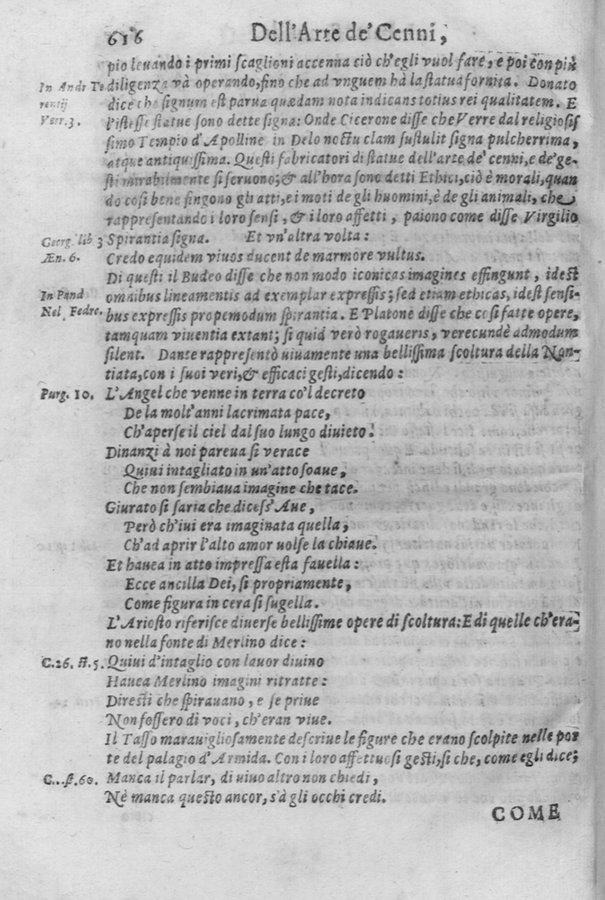 616 Dell'Arte de' Cenni,
pio levando i primi scaglioni accenna ciò ch'egli vuol fare, e poi con più
In Andr Te diligenza và operando, fino che ad vnguem hà la statua fornita. Donato
rentij dice che signum est parua quædam nota indicans totius rei qualitatem. E
Verr. 3. l'istesse statue sono dette signa: Onde Cicerone disse che Verre dal religiosis
simo Tempio d'Apolline in Delo noctu clam sustulit signa pulcherrima,
atque antiquissima. Questi fabricatori di statue dell'arte de' cenni, e de' ge-
sti mirabilmente si seruono; & all'hora sono detti Ethici, ciò è morali, quan
do cosi bene fingono gli atti, e i moti de gli huomini, è de gli animali, che
rappresentando i loro sensi, & i loro affetti, paiono come disse Virgilio
Georg. lib 3 Spirantia signa. Et vn'altra volta:
Æn. 6. Credo equidem viuos ducent de marmore vultus.
Di questi il Budeo disse che non modo iconicas imagines effingunt, idest
In Pand omnibus lineamentis ad exemplar expressis; sed etiam ethicas, idest sensi-
Nel Fedro. bus expressis propemodum spirantia. E Platone disse che cosi fatte opere,
tamquam viuentia extant; si quid verò rogaueris, verecundè admodum
silent. Dante rappresentò viuamente una bellissima scoltura della Non-
tiata, con i suoi veri, & efficaci gesti, dicendo:
Purg. 10. L'Angel che venne in terra co'l decreto
De la molt'anni lacrimata pace,
Ch'aperse il ciel dal suo lungo diuieto.
Dinanzi à noi pareua si verace
Quiui intagliato in un'atto soaue,
Che non sembiaua imagine che tace.
Giurato si saria che dicess' Aue,
Però ch'iui era imaginata quella,
Ch'ad aprir l'alto amor uolse la chiaue.
Et hauea in atto impressa esta fauella:
Ecce ancilla Dei, si propriamente,
Come figura in cera si sugella.
L'Ariosto riferisce diuerse bellissime opere di scoltura: E di quelle ch'era-
no nella fonte di Merlino dice:
C. 26. st. 5. Quiui d'intaglio con lauor diuino
Hauea Merlino imagini ritratte:
Diresti che spirauano, e se priue
Non fossero di voci, ch'eran viue.
Il Tasso marauigliosamente descriue le figure che erano scolpite nelle por
te del palagio d'Armida. Con i loro affettuosi gesti, si che, come egli dice;
C... st. 60. Manca il parlar, di viuo altro non chiedi,
Nè manca questo ancor, s'à gli occhi credi.
COME